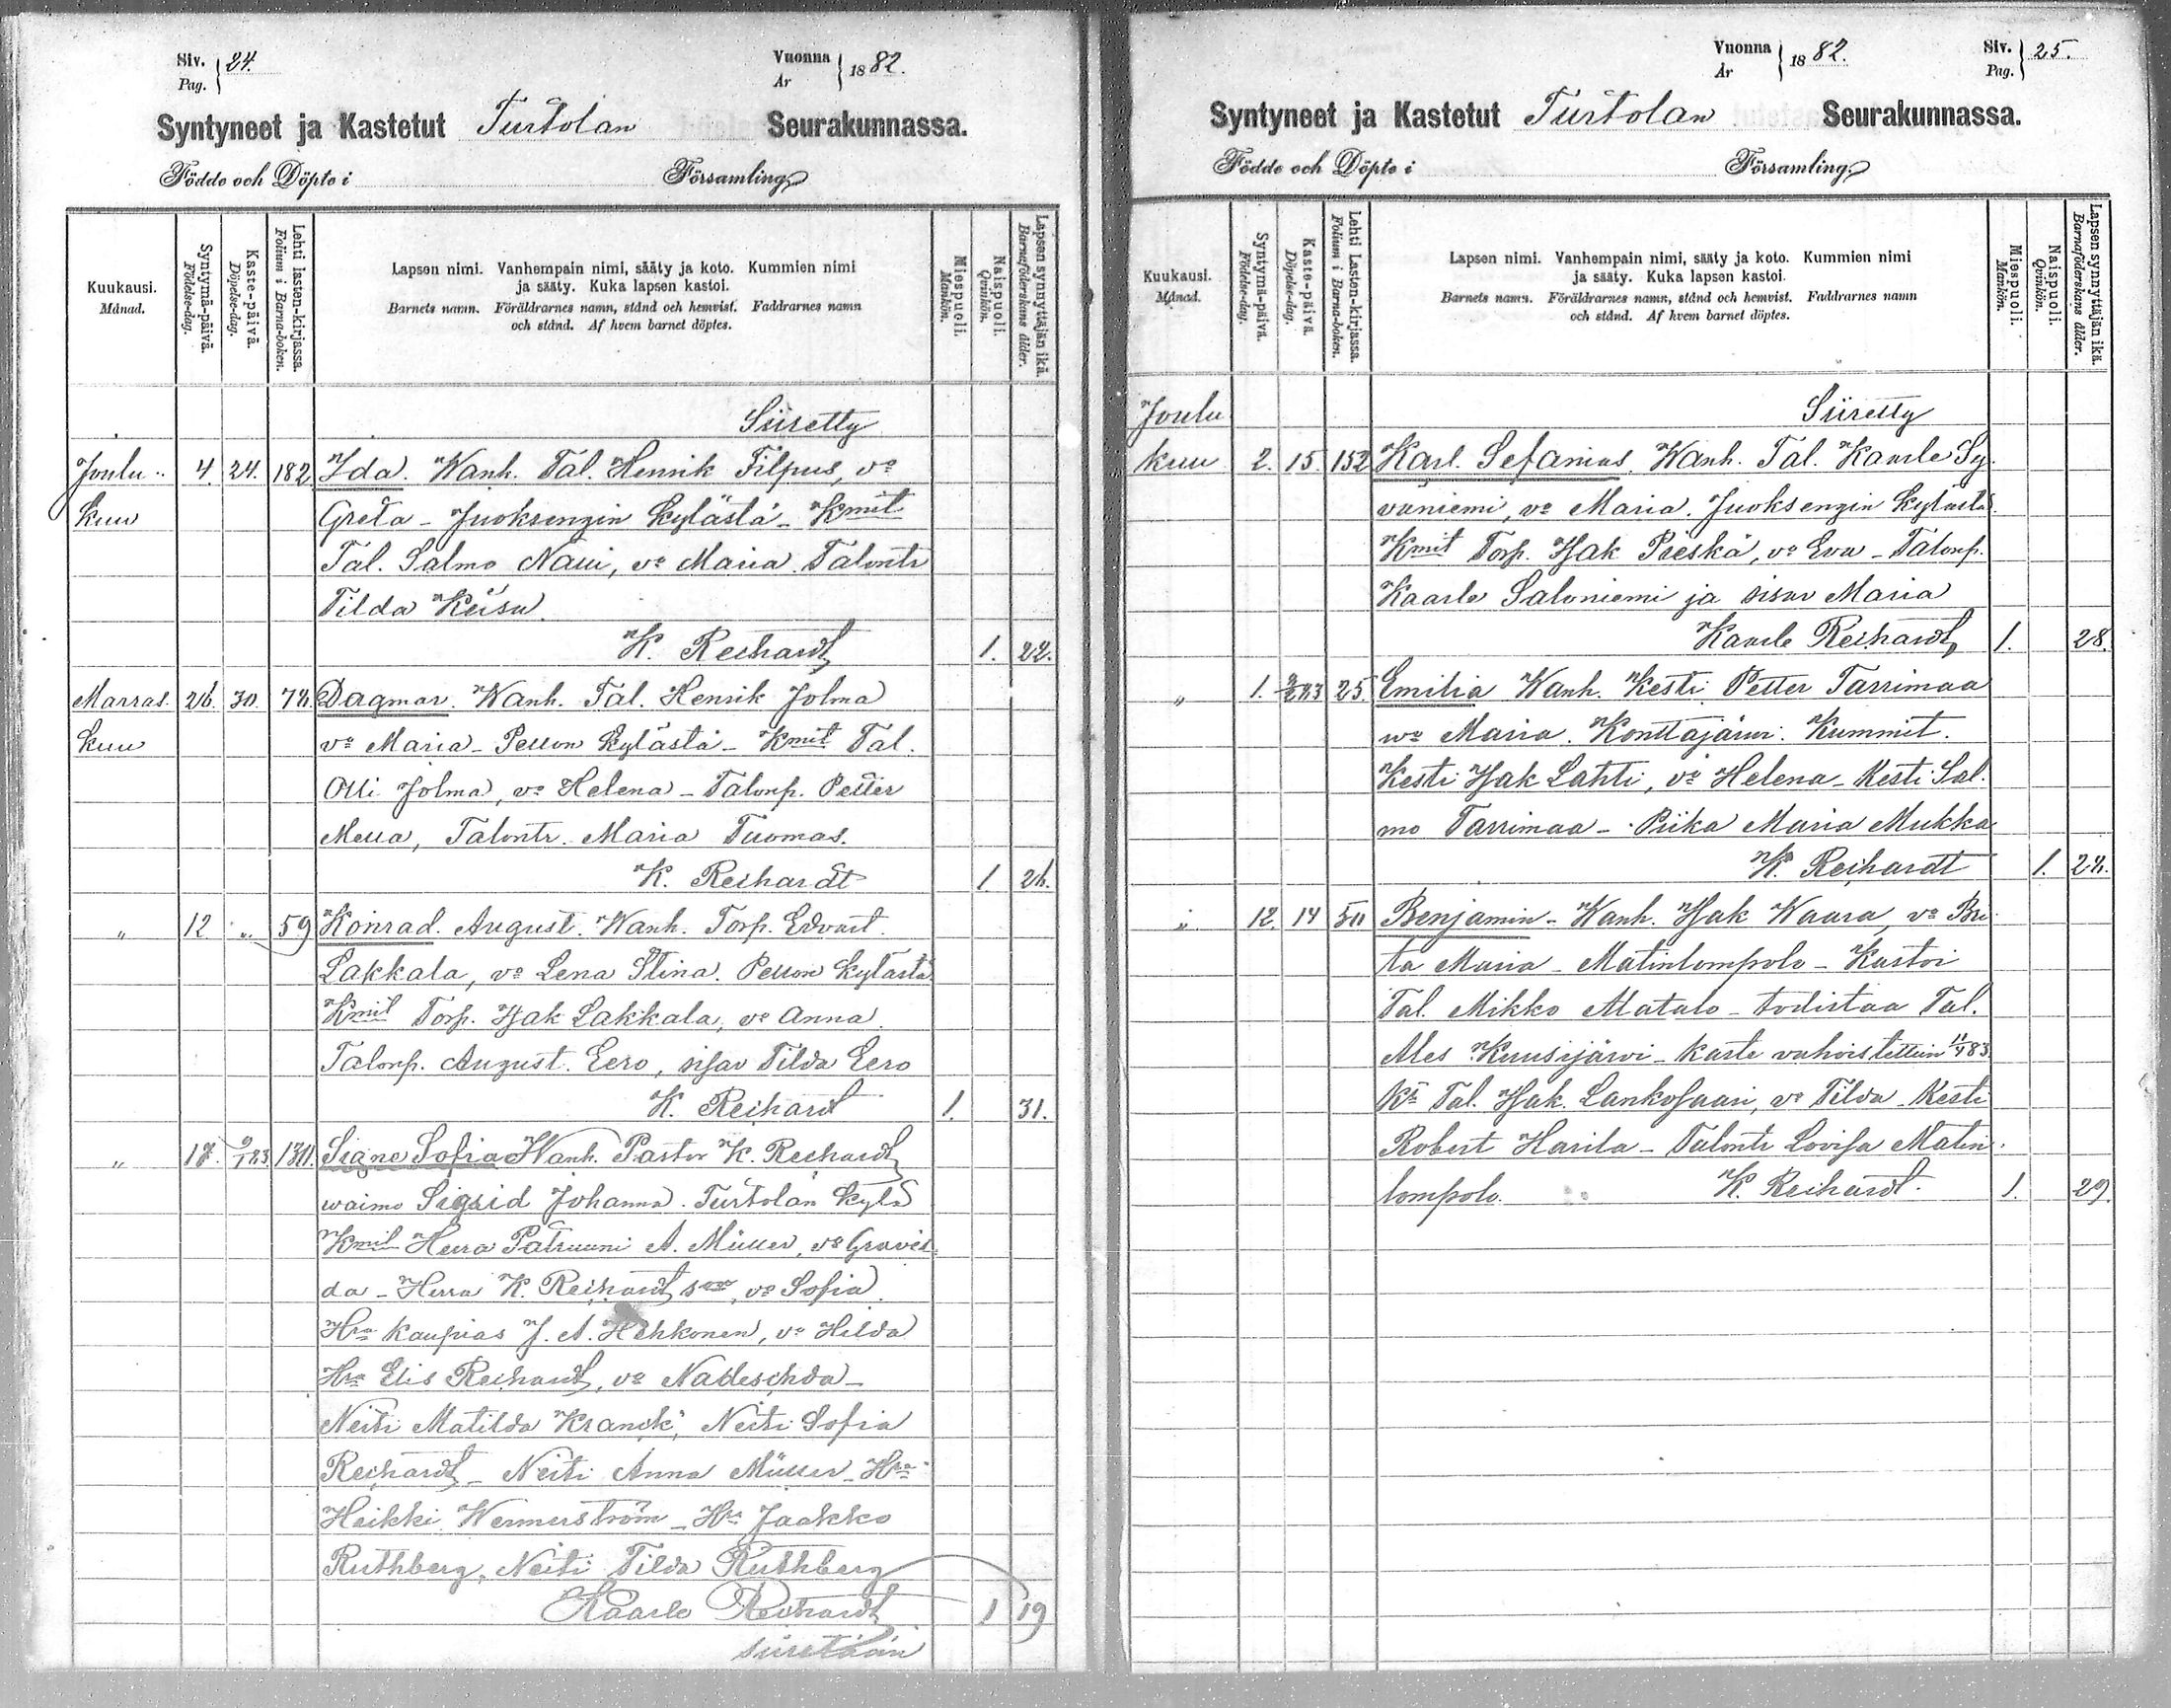 Siv. Pag. } 24.
Vuonna År } 1882.
Syntyneet ja Kastetut Turtolan Seurakunnassa.
Födde och Döpte i Församling
Kuukausi. Månad.
Syntymä-päivä. Födelse-dag.
Kaste-päivä. Döpelse-dag.
Lehti lasten-kirjassa. Folium i Barna-boken.
Lapsen nimi. Vanhempain nimi, sääty ja koto. Kummien nimi
ja sääty. Kuka lapsen kastoi.
Barnets namn. Föräldrarnes namn, stånd och hemvist. Faddrarnes namn
och stånd. Af hvem barnet döptes.
Miespuoli. Mankön.
Naispuoli. Qvinkön.
Lapsen synnyttäjän ikä. Barnaföderskans ålder.
Siiretty
Joulu 4. 24. 182 Ida. Wanh. Tal. Henrik Filpus, vo
kuu Greta - Juoksengin kylästä - Kmit
Tal. Salmo Naui, vo Maria. Talontr
Tilda Keisu.
K. Reihardt 1. 22.
Marras 26. 30. 78. Dagmar. Wanh. Tal. Henrik Jolma
kuu vo Maria - Pellon kylästä - Kmit Tal.
Olli Jolma, vo Helena - Talonp. Petter
Mella, Talontr. Maria Tuomas.
K. Reihardt 1 26.
" 12 " 59 Konrad. August. Wanh. Torp. Edvart.
Lakkala, vo Lena Stina. Pellon kylästä
Kmit Torp. Isak Lakkala, vo Anna.
Talonp. August. Eero, sisar Tilda Eero
K. Reihardt 1. 31.
" 17. 9/1 83 Signe Sofia Wanh. Pastor K. Reihardt
waimo Sigrid Johanna. Turtolan kylä
Kmit Herra Patruuni A. Müller, vo
da - Herra K. Reihardt, vo Sofia.
Hra Kaupias J. A. Hehkonen, vo Hilda
Hra Elis Reihardt, vo Nadeschda -
Neiti Matilda Kranck, Neiti Sofia
Reihardt - Neiti Anna Müller - Hra
Heikki Wennerström - Hra Jaakko
Ruthberg, Neiti Tilda Ruthberg
Kaarlo Reihardt 1 19
siiretään
Vuonna År } 1882.
Siv. Pag. } 25.
Syntyneet ja Kastetut Turtolan Seurakunnassa.
Födde och Döpte i Församling.
Kuukausi. Månad.
Syntymä-päivä. Födelse-dag.
Kaste-päivä. Döpelse-dag.
Lehti Lasten-kirjassa. Folium i Barna-boken.
Lapsen nimi. Vanhempain nimi, sääty ja koto. Kummien nimi
ja sääty. Kuka lapsen kastoi.
Barnets namn. Föräldrarnes namn, stånd och hemvist. Faddrarnes namn
och stånd. Af hvem barnet döptes.
Miespuoli. Mankön.
Naispuoli. Qvinkön.
Lapsen synnyttäjän ikä. Barnaföderskans ålder.
Joulu Siiretty
kuu 2. 15. 152 Karl. Sefanias. Wanh. Tal. Kaarle Sy
väniemi, vo Maria. Juoksengin kylästä
Kmit Torp. Isak Pieskä, vo Eva - Talonp.
Kaarle Saloniemi ja sisar Maria
Kaarle Reihardt 1. 28.
" 1. 25. Emilia Wanh. Kesti Petter Tarrimaa
wo Maria. Konttajärwi. Kummit.
Kesti Isak Lahti, vo Helena - Kesti Sal.
mo Tarrimaa - Piika Maria Mukka
K. Reihardt 1. 28.
" 12. 14 Benjamin - Wanh. Isak Waara, vo Bri
ta Maria - Matinlompolo - Kastoi
Tal. Mikko Matalo - todistaa Tal.
Ales Kuusijärwi - kaste vahvistettiin 11/4 83
Kt Tal. Isak. Lankosaari, vo Tilda - Kesti
Robert Harila - Talontr Lovisa Matin
lompolo. K. Reihardt. 1. 29.